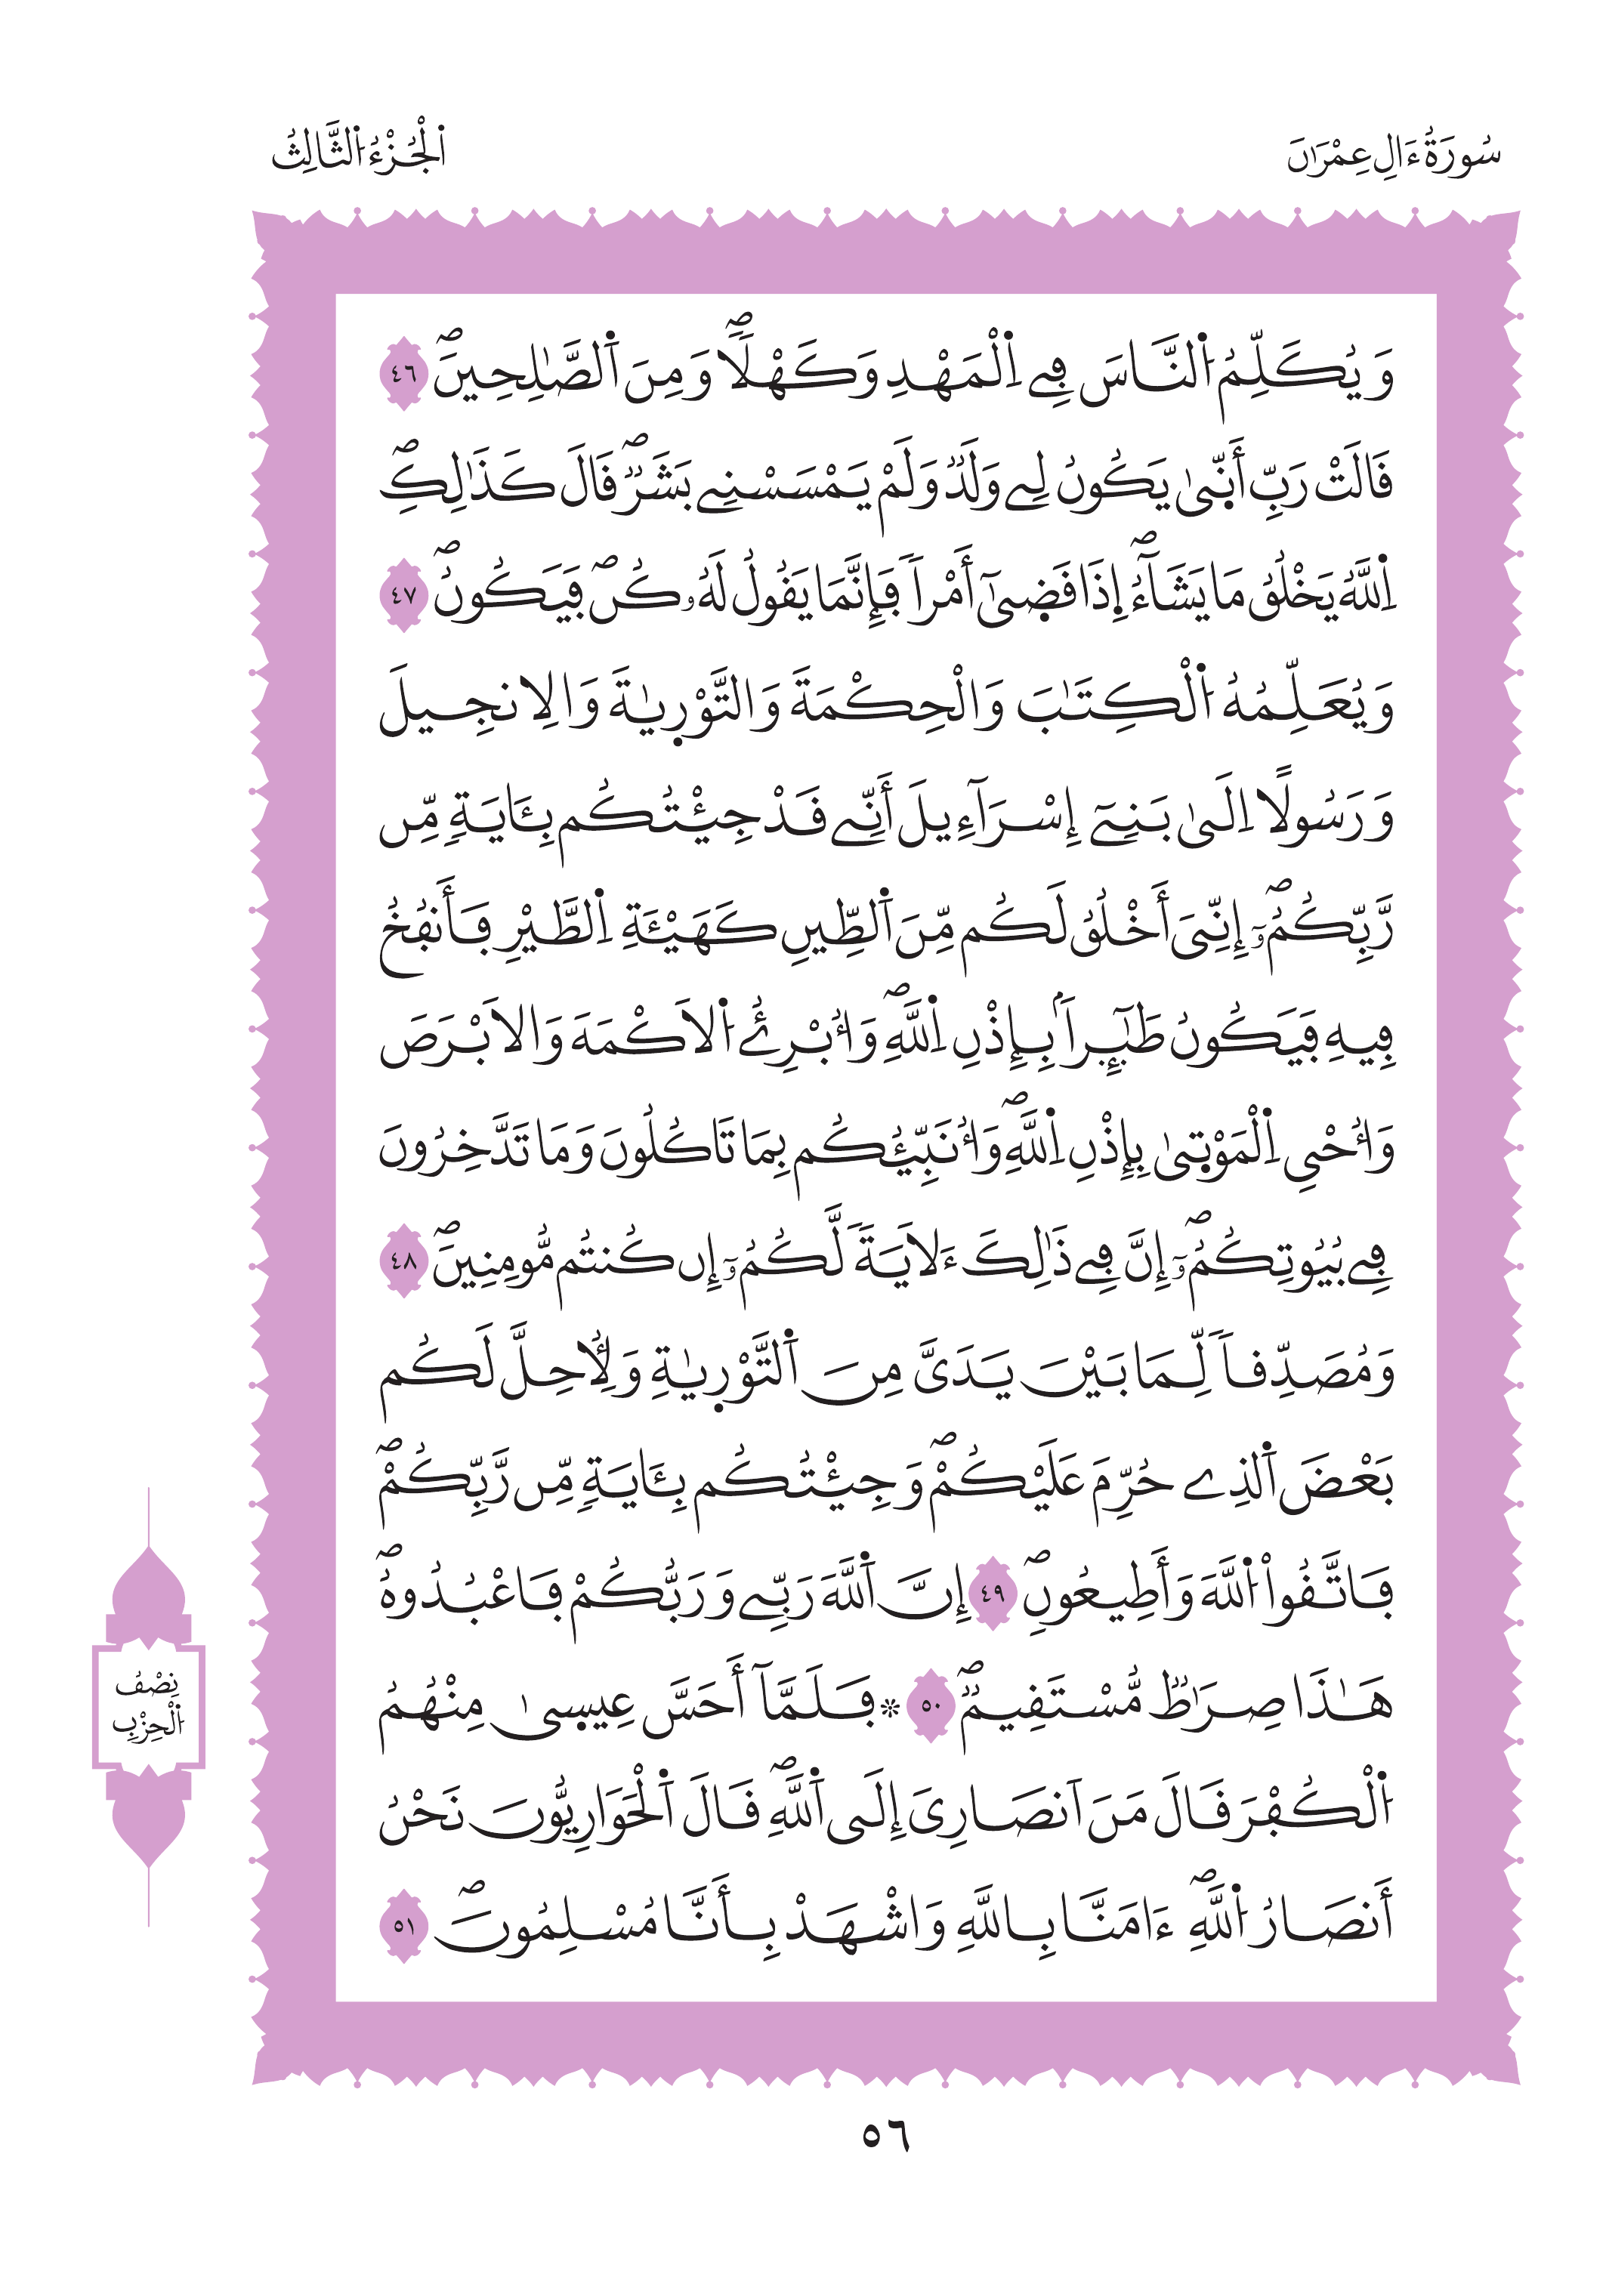 سُورَةُ ءَالِ عِمْرَٰنَ
اَ۬لْجُزْءُ اُ۬لثَّالِثُ
وَيُكَلِّمُ اُ۬لنَّاسَ فِے اِ۬لْمَهْدِ وَكَهْلاٗۖ وَمِنَ اَ۬لصَّٰلِحِينَۖ ٤٦
قَالَتْ رَبِّ أَنّ۪ىٰ يَكُونُ لِے وَلَدٞ وَلَمْ يَمْسَسْنِے بَشَرٞۖ قَالَ كَذَٰلِكِۖ
اِ۬للَّهُ يَخْلُقُ مَا يَشَآءُۖ اِ۪ذَا قَض۪ىٰٓ أَمْراٗ فَإِنَّمَا يَقُولُ لَهُۥ كُنۖ فَيَكُونُۖ ٤٧
وَيُعَلِّمُهُ اُ۬لْكِتَٰبَ وَالْحِكْمَةَ وَالتَّوْر۪يٰةَ وَالِانجِيلَ
وَرَسُولاً اِلَىٰ بَنِےٓ إِسْرَآءِيلَ أَنِّے قَدْ جِئْتُكُم بِـَٔايَةٖ مِّن
رَّبِّكُمُۥٓۖ إِنِّيَ أَخْلُقُ لَكُم مِّنَ اَ۬لطِّينِ كَهَيْـَٔةِ اِ۬لطَّيْرِ فَأَنفُخُ
فِيهِ فَيَكُونُ طَٰٓئِراَۢ بِإِذْنِ اِ۬للَّهِۖ وَأُبْرِئُ اُ۬لَاكْمَهَ وَالَابْرَصَ
وَأُحْيِ اِ۬لْمَوْت۪ىٰ بِإِذْنِ اِ۬للَّهِۖ وَأُنَبِّئُكُم بِمَا تَاكُلُونَ وَمَا تَدَّخِرُونَ
فِے بُيُوتِكُمُۥٓۖ إِنَّ فِے ذَٰلِكَ ءَلَايَةٗ لَّكُمُۥٓ إِن كُنتُم مُّومِنِينَۖ ٤٨
وَمُصَدِّقاٗ لِّمَا بَيْنَ يَدَيَّ مِنَ اَ۬لتَّوْر۪يٰةِ وَلِأُحِلَّ لَكُم
بَعْضَ اَ۬لذِے حُرِّمَ عَلَيْكُمْۖ وَجِئْتُكُم بِـَٔايَةٖ مِّن رَّبِّكُمْۖ
فَاتَّقُواْ اُ۬للَّهَ وَأَطِيعُونِۖ ٤٩ إِنَّ اَ۬للَّهَ رَبِّے وَرَبُّكُمْ فَاعْبُدُوهُۖ
هَٰذَا صِرَٰطٞ مُّسْتَقِيمٞۖ ٥٠ ۞ فَلَمَّآ أَحَسَّ عِيس۪ىٰ مِنْهُمُ
اُ۬لْكُفْرَ قَالَ مَنَ اَنصَارِيَ إِلَى اَ۬للَّهِۖ قَالَ اَ۬لْحَوَارِيُّونَ نَحْنُ
أَنصَارُ اُ۬للَّهِۖ ءَامَنَّا بِاللَّهِ وَاشْهَدْ بِأَنَّا مُسْلِمُونَۖ ٥١
نِصْفُ
اُ۬لْحِزْبِ
٥٦